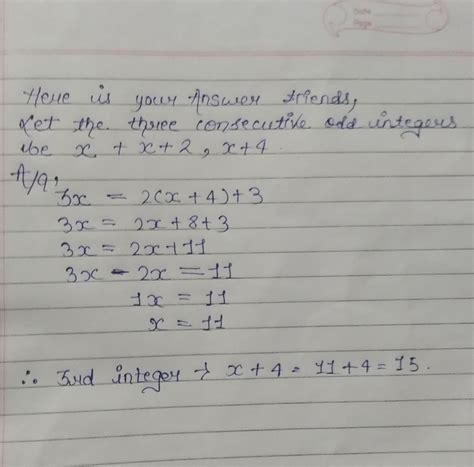 Date
Page
Here is your Answer friends,
Let the three consecutive odd integers
be x + x+2, x+4.
A/q,
3x = 2(x+4)+3
3x = 2x+8+3
3x = 2x+11
3x - 2x = 11
1x = 11
x = 11
∴ 3rd integer → x+4 = 11+4 = 15.